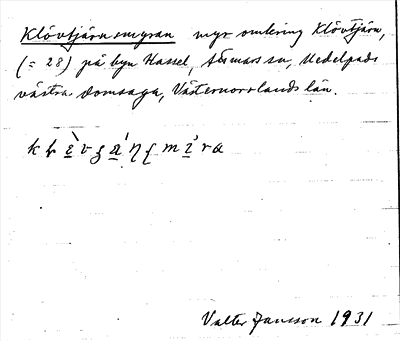 Klövtjärnsmyran myr omkring Klövtjärn,
(= 28) på byn Hassel, Medelpads
västra domsaga, Västernorrlands län.
Valter Jansson 1931